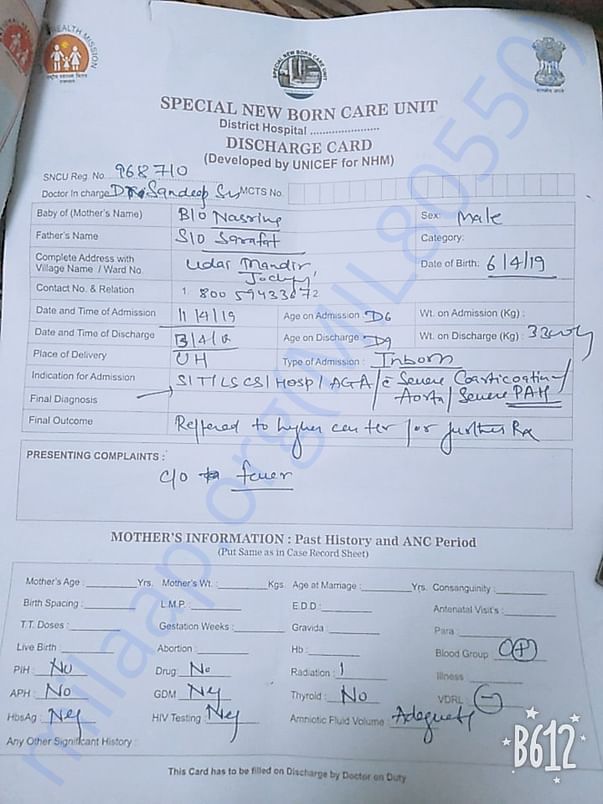 HEALTH MISSION
SPECIAL NEW BORN CARE UNIT
SPECIAL NEW BORN CARE UNIT
District Hospital ......................
DISCHARGE CARD
(Developed by UNICEF for NHM)
SNCU Reg. No. 968710
Doctor In charge Dr Sandeep Sir MCTS No.
Baby of (Mother's Name) B/O Nasrine Sex: Male
Father's Name S/O Sarafat Category:
Complete Address with Village Name / Ward No. Udai Mandir Date of Birth: 6/4/19
Contact No. & Relation 1.
Date and Time of Admission 11/4/19 Age on Admission : D6 Wt. on Admission (Kg) :
Date and Time of Discharge Age on Discharge : D9 Wt. on Discharge (Kg) :
Place of Delivery UH Type of Admission : Inborn
Indication for Admission S/T/LSCS/HOSP/AGA/ c Severe Coarctation/
Final Diagnosis Aorta/Severe PAH
Final Outcome Reffered to higher center for further Rx
PRESENTING COMPLAINTS :
c/o fever
MOTHER'S INFORMATION : Past History and ANC Period
(Put Same as in Case Record Sheet)
Mother's Age : Yrs. Mother's Wt. : Kgs. Age at Marriage : Yrs. Consanguinity :
Birth Spacing : L.M.P. : E.D.D : Antenatal Visit's :
T.T. Doses : Gestation Weeks : Gravida : Para :
Live Birth : Abortion : Hb : Blood Group : O+
PIH : No Drug : No Radiation : Illness :
APH : No GDM : Neg Thyroid : No VDRL : -
HbsAg : Neg HIV Testing : Neg Amniotic Fluid Volume :
Any Other Significant History :
This Card has to be filled on Discharge by Doctor on Duty
milaap.org(MIL805550)
B612